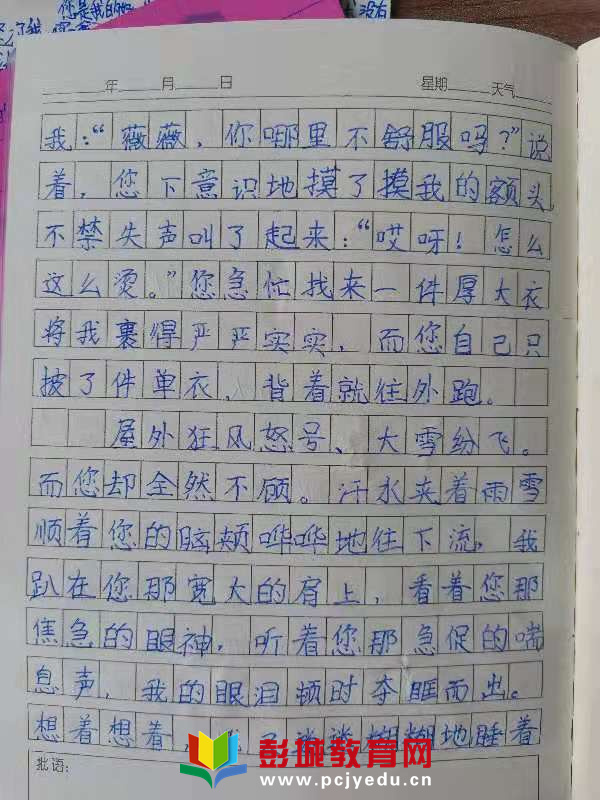 您是我的好
没有
年 月 日 星期 天气
我:“薇薇,你哪里不舒服吗?”说
着,您下意识地摸了摸我的额头,
不禁失声叫了起来:“哎呀!怎么
这么烫。”您急忙找来一件厚大衣
将我裹得严严实实,而您自己只
披了件单衣,背着就往外跑。
屋外狂风怒号、大雪纷飞。
而您却全然不顾。汗水夹着雨雪
顺着您的脑颊哗哗地往下流,我
趴在您那宽大的肩上,看着您那
焦急的眼神,听着您那急促的喘
息声,我的眼泪顿时夺眶而出。
想着想着,糊糊地睡着
批语:
彭城教育网
www.pcjyedu.cn